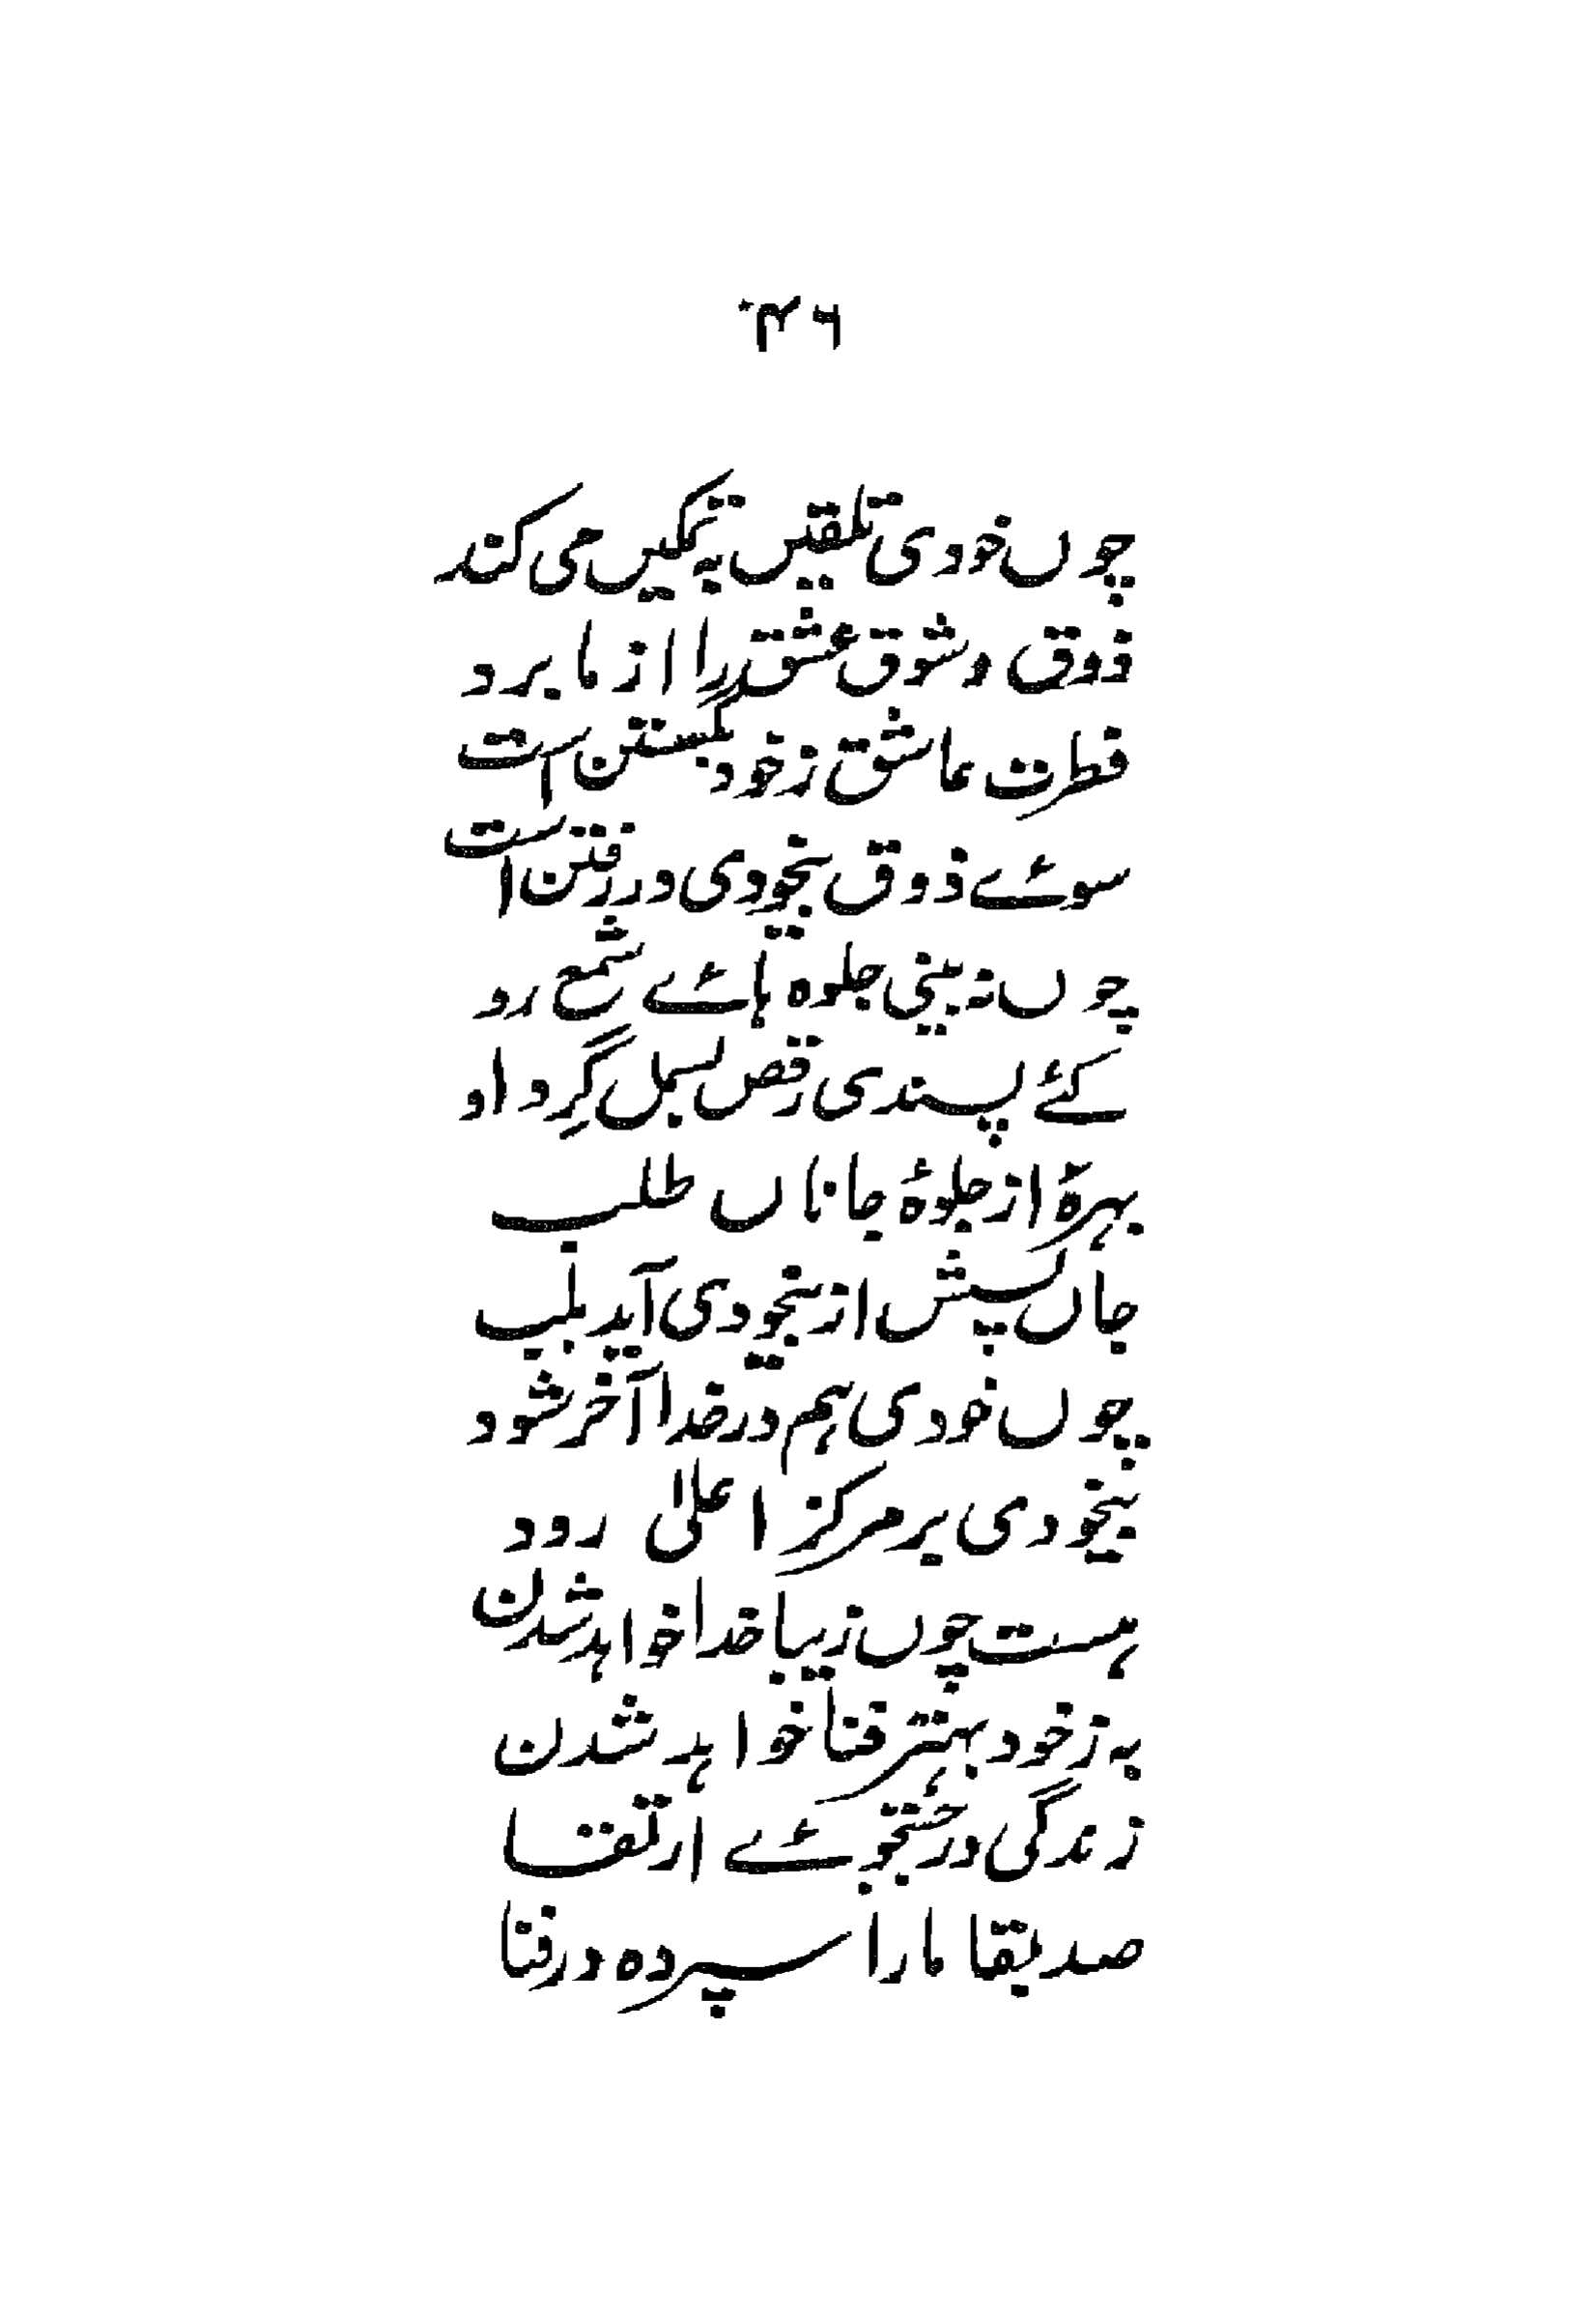 ۴۶
چوں خودی تلقینِ تمکیں می کند
ذوق و شوق عشق را از ما برد
فطرت عاشق ز خود بگسستن است
سوئے ذوق بیخودی در رفتن است
چوں نہ بینی جلوہ ہائے شمع رو
کئے پسندی رقص بسمل گِرد او
بہرۂ از جلوۂ جاناں طلب
جاں بپیشش از بیخودی آید بلب
چوں خودی ہم در خدا آخر شود
بیخودی بر مرکز اعلیٰ رود
ہست چوں زیبا خدا خواہد شدن
بہ ز خود بہتر فنا خواہد شدن
زندگی در جستجوئے ارتقا
صد بقا ما را سپردہ در فنا